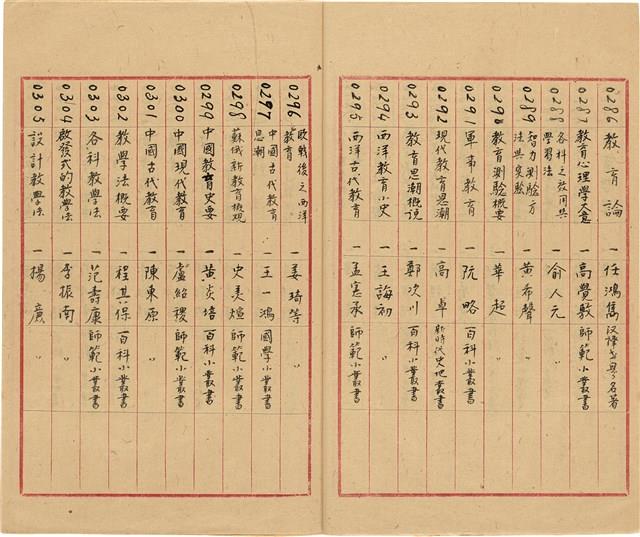 0286 教育論 一 任鴻雋 汉譯世界名著
0287 教育心理學大意 一 高覺敷 師範小叢書
0288 各科之效用與學習法 一 俞人元 〃
0289 智力測驗方法與實驗 一 黃希聲 〃
0290 教育測驗概要 一 華超 〃
0291 軍事教育 一 阮略 百科小叢書
0292 現代教育思潮 一 高卓 新時代史地叢書
0293 教育思潮概說 一 鄭次川 百科小叢書
0294 西洋教育小史 一 王誨初 〃
0295 西洋古代教育 一 孟憲承 師範小叢書
0296 欧戰後之西洋教育 一 姜琦等 〃
0297 中國古代教育思潮 一 王一鴻 國學小叢書
0298 蘇俄新教育概观 一 史美煊 師範小叢書
0299 中國教育史要 一 黃炎培 百科小叢書
0300 中國現代教育 一 盧紹稷 師範小叢書
0301 中國古代教育 一 陳東原 〃
0302 教學法概要 一 程其保 百科小叢書
0303 各科教學法 一 范壽康 師範小叢書
0304 啟發式的教學法 一 李振南 〃
0305 設計教學法 一 楊廉 〃